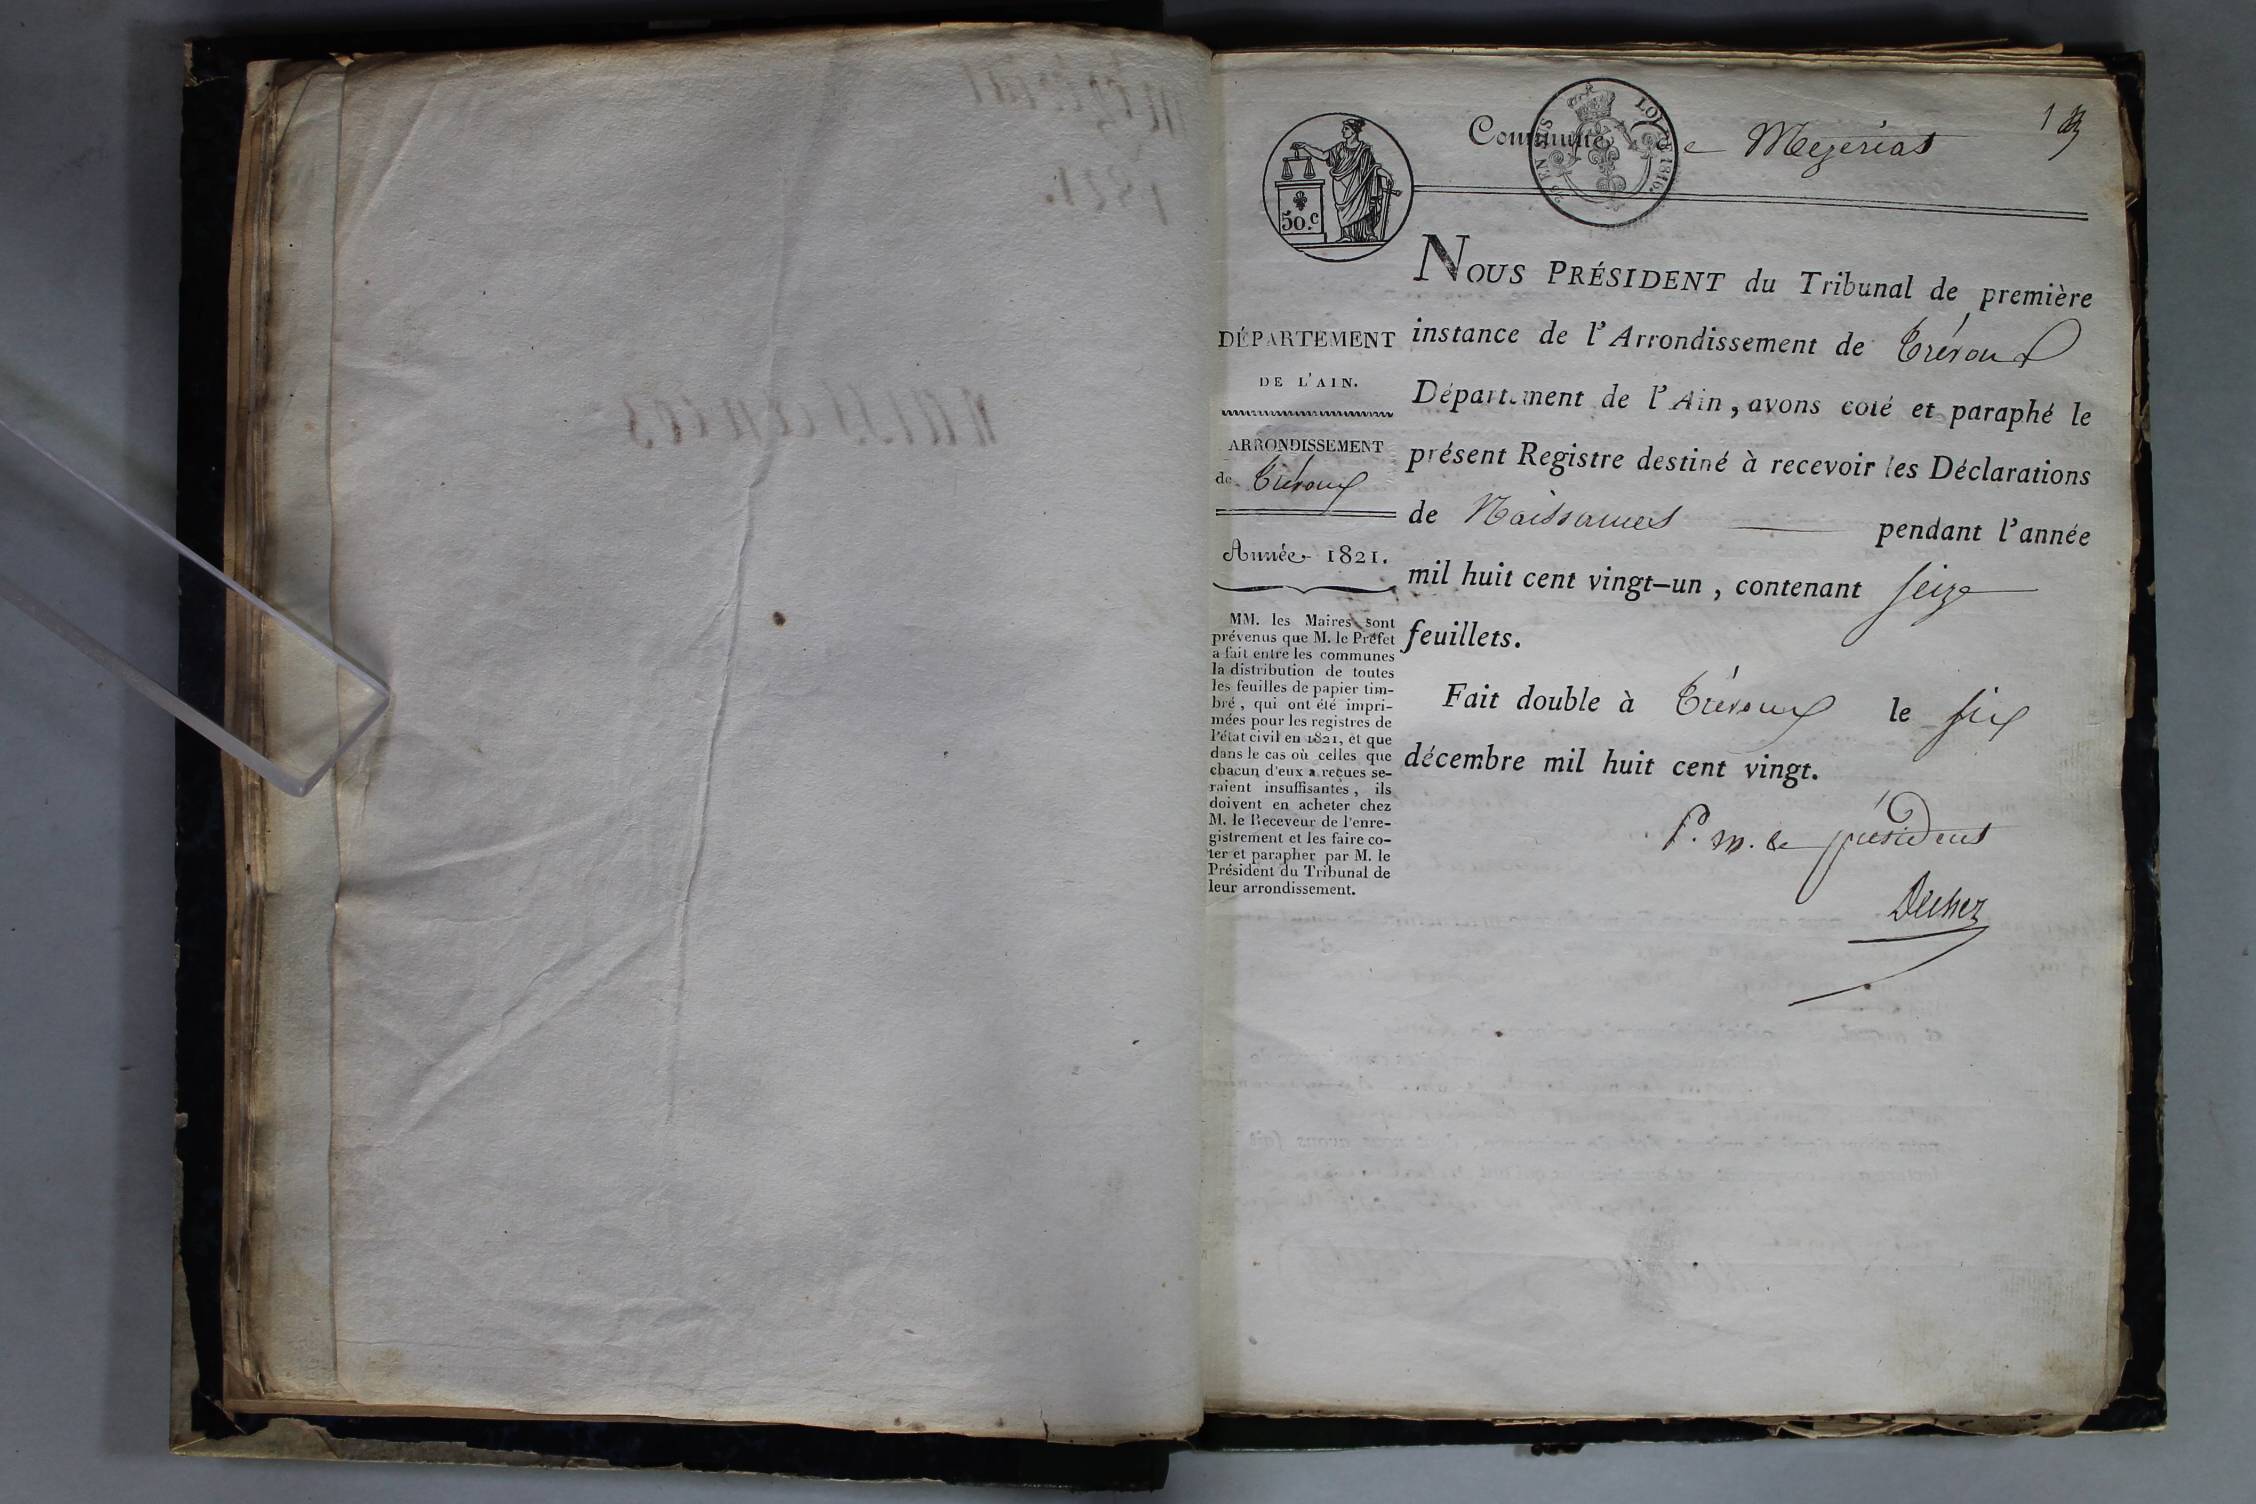 Mezériat
1821.
naissances
Commune de Mezeriat
1
LOI DE 1816.
EN SUS
50.c
DÉPARTEMENT
DE L'AIN.
ARRONDISSEMENT
de Trévoux
Année 1821.
MM. les Maires sont
prévenus que M. le Préfet
a fait entre les communes
la distribution de toutes
les feuilles de papier tim-
bré, qui ont été impri-
mées pour les registres de
l'état civil en 1821, et que
dans le cas où celles que
chacun d'eux a reçues se-
raient insuffisantes, ils
doivent en acheter chez
M. le Receveur de l'enre-
gistrement et les faire co-
ter et parapher par M. le
Président du Tribunal de
leur arrondissement.
NOUS PRÉSIDENT du Tribunal de première
instance de l'Arrondissement de Trévoux
Département de l'Ain, avons coté et paraphé le
présent Registre destiné à recevoir les Déclarations
de Naissances — pendant l'année
mil huit cent vingt-un, contenant seize
feuillets.
Fait double à Trévoux le six
décembre mil huit cent vingt.
P. m. le président